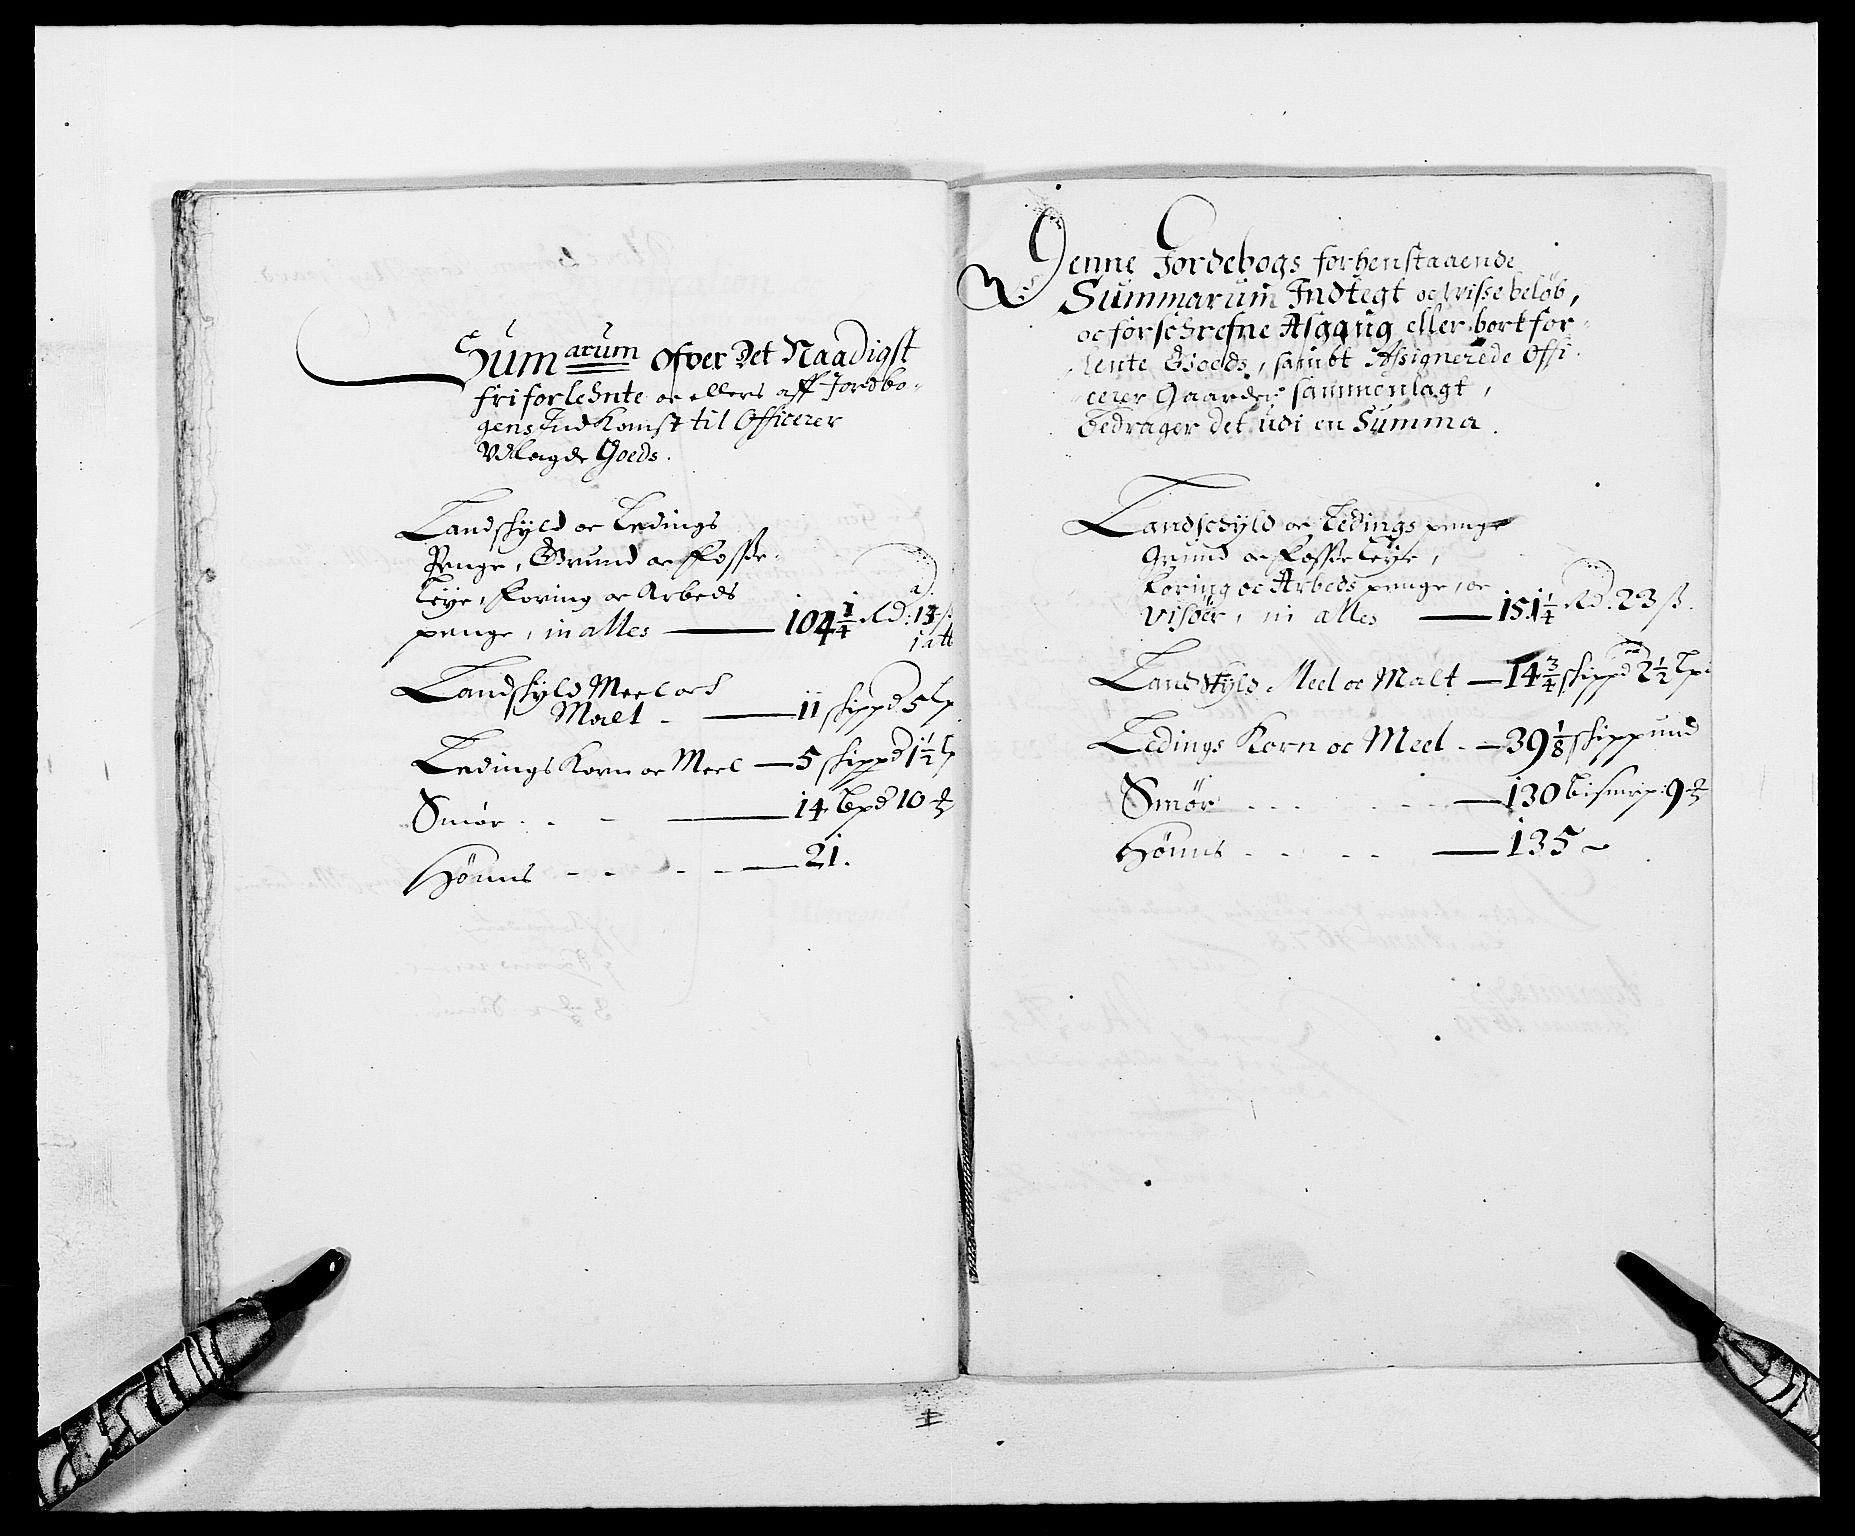 Sumarum ofver Det Naadigst
friforlehnte oc ellers aff Jordbo-
gens Indkomst til Officerer
Udlagde Goeds.
Landskyld oc Ledings
Penge, Grund oc Fosse-
Leye, Foring oc Arbeds
penge, in alles — 104 1/4 Rd: 13 ß
1 alb
Landskyld Meel och
Malt - — 11 skippd 5 Lp
Ledings Korn oc Meel — 5 skippd 1 1/2 Lp
Smør - - - — 14 Bpd 10
Hønns - - - - — 21.
Denne Jordebogs forhenstaaende
Summarum Indtegt oc visse beløb,
oc forschrefne Afgang eller bortfor-
lente Goeds, sambt Assignerede Offi-
cerer Gaarder sammenlagt,
Bedrager det udi en Summa.
Landschyld oc Ledings penge
Grund oc Fosse Leye,
Foring oc Arbeds penge, oc
Visøer, in alles — 151 1/4 Rd. 23 ß.
Landskyld Meel oc Malt — 14 3/4 skippd 2 1/2 Lp:
Ledings Korn oc Meel - — 39 1/8 skippund
Smør - - - - — 130 bismrp: 9
Hønns - - - - — 135